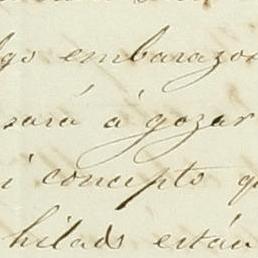 lgo embarazos
sará á gozar
i concepto q
hilads están